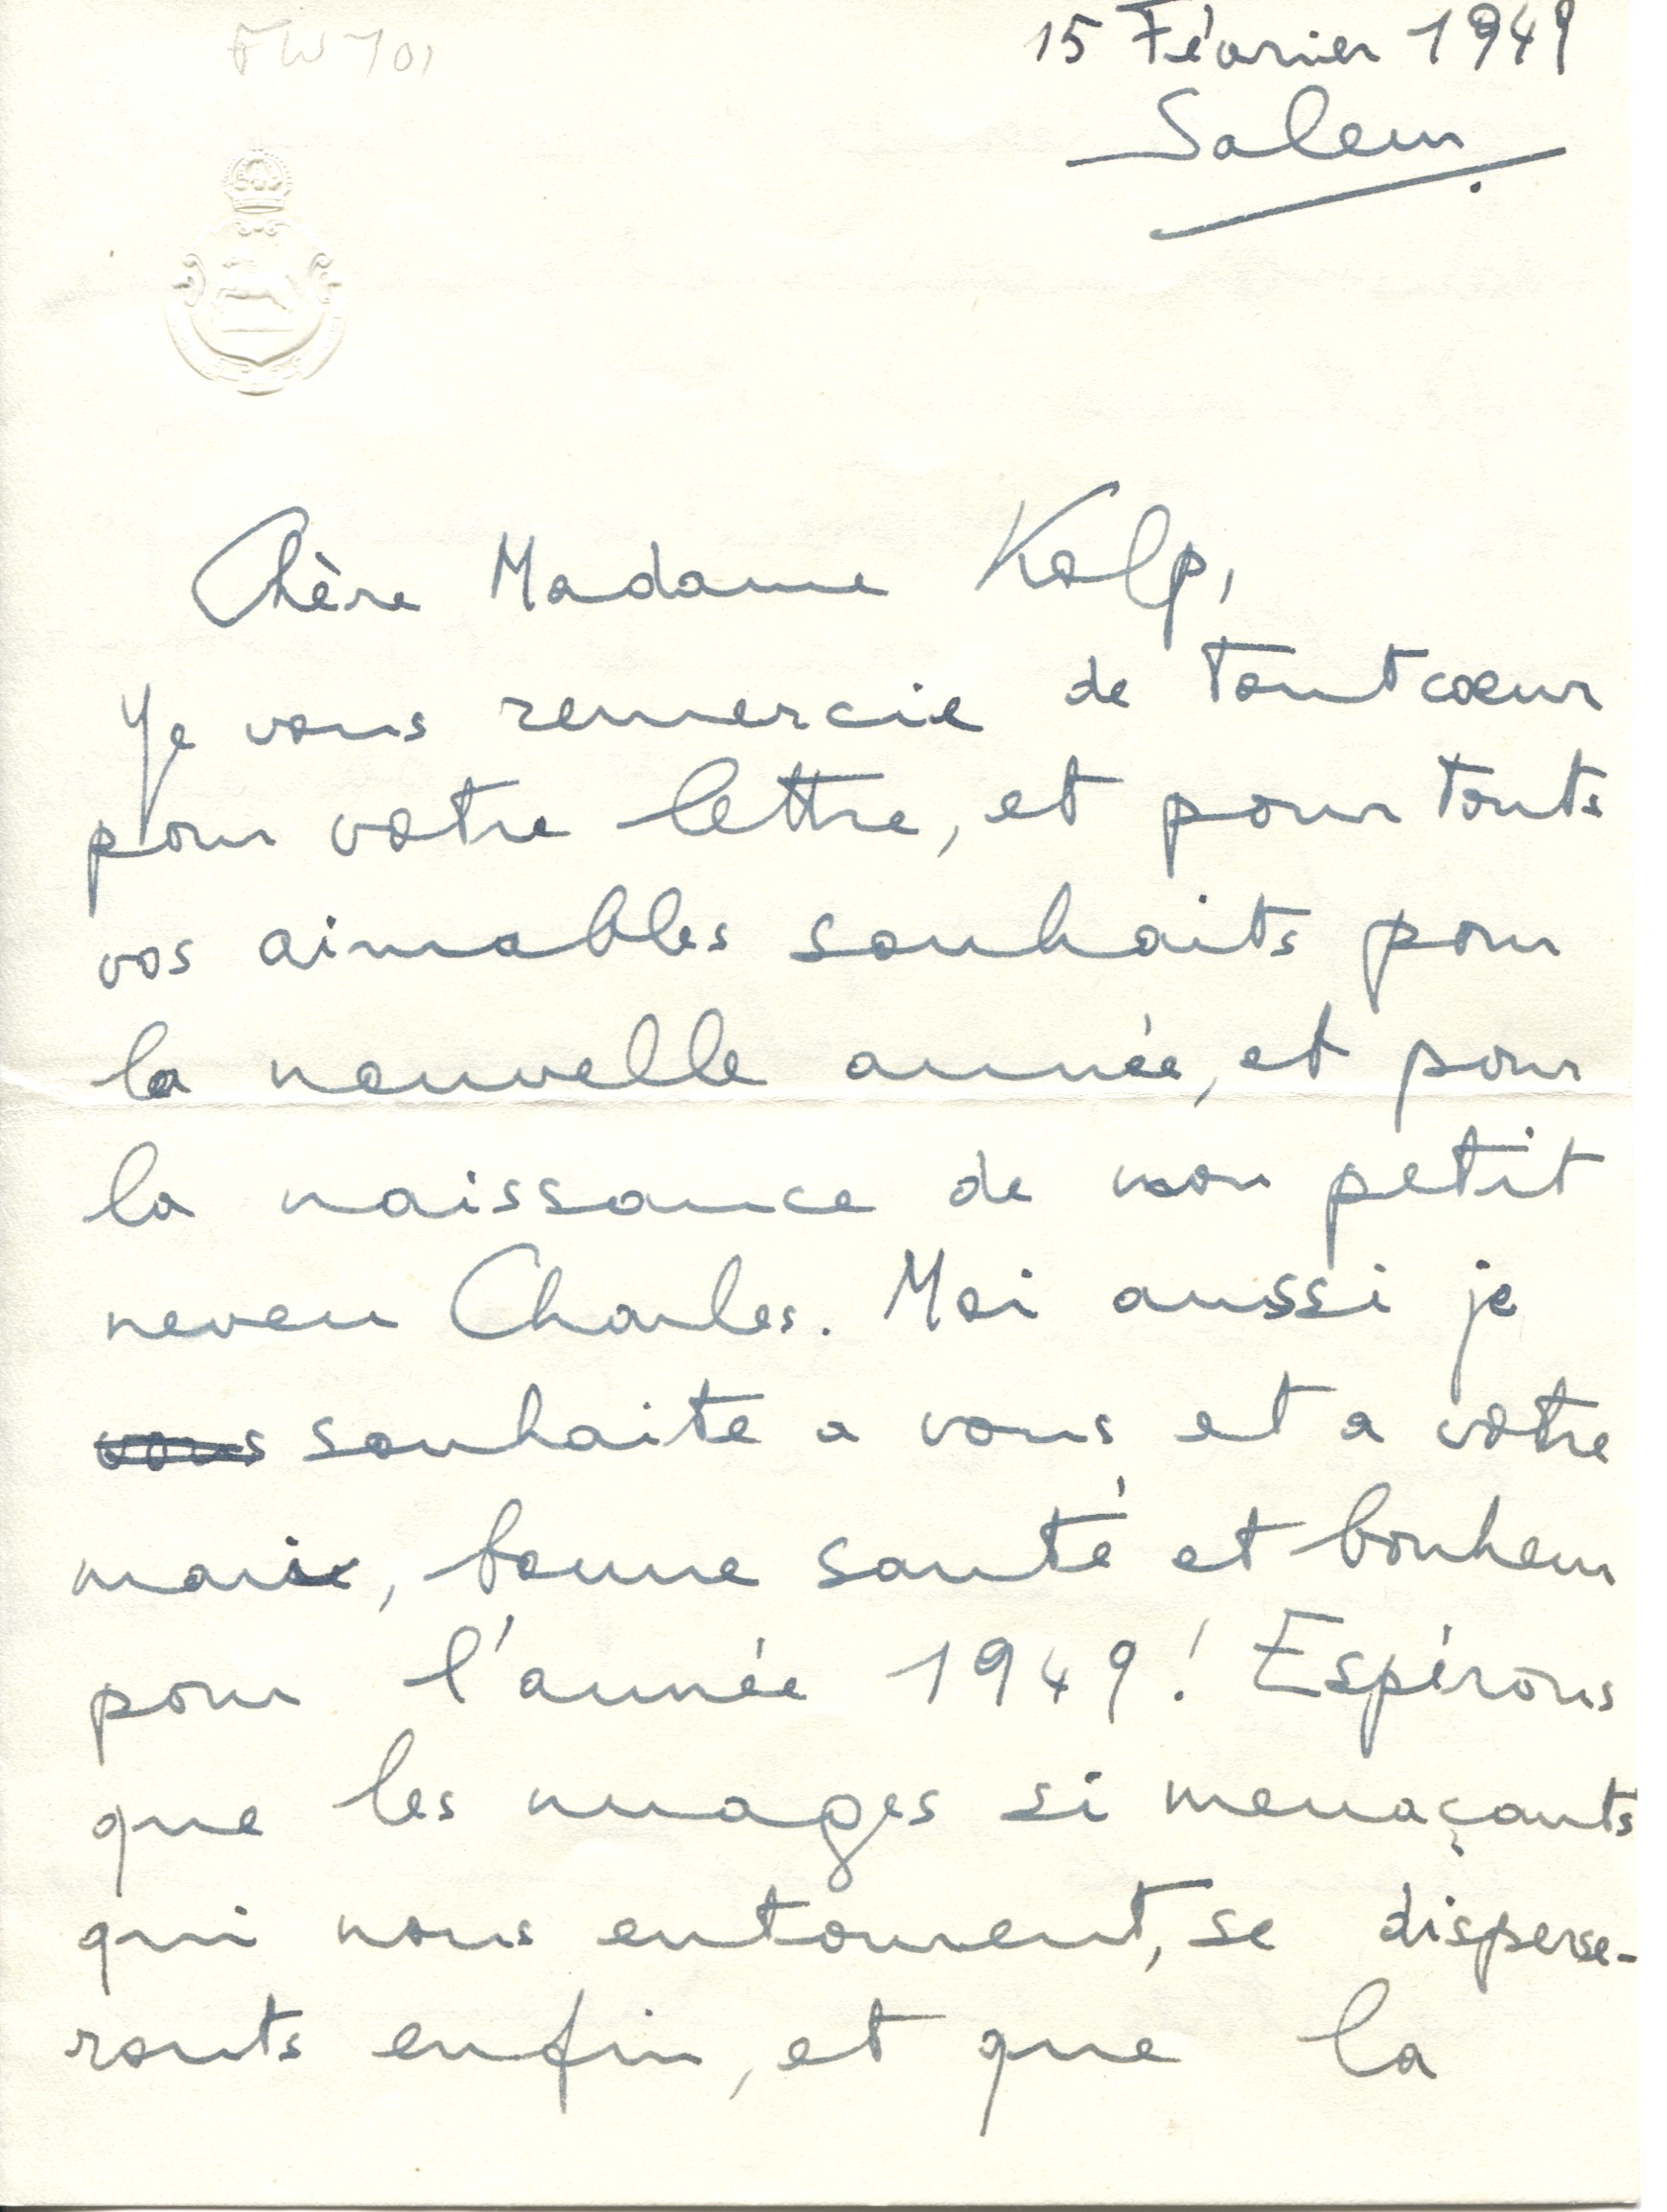 15 Février 1949
Salem.
Chère Madame Kolp,
Je vous remercie de tout cœur
pour votre lettre, et pour touts
vos aimables souhaits pour
la nouvelle année, et pour
la naissance de mon petit
neveu Charles. Moi aussi je
vous souhaite a vous, et a votre
marie, bonne santé et bonheur
pour l'année 1949! Espérons
que les nuages si menaçants
qui nous entourent, se disperse-
ronts enfin, et que la